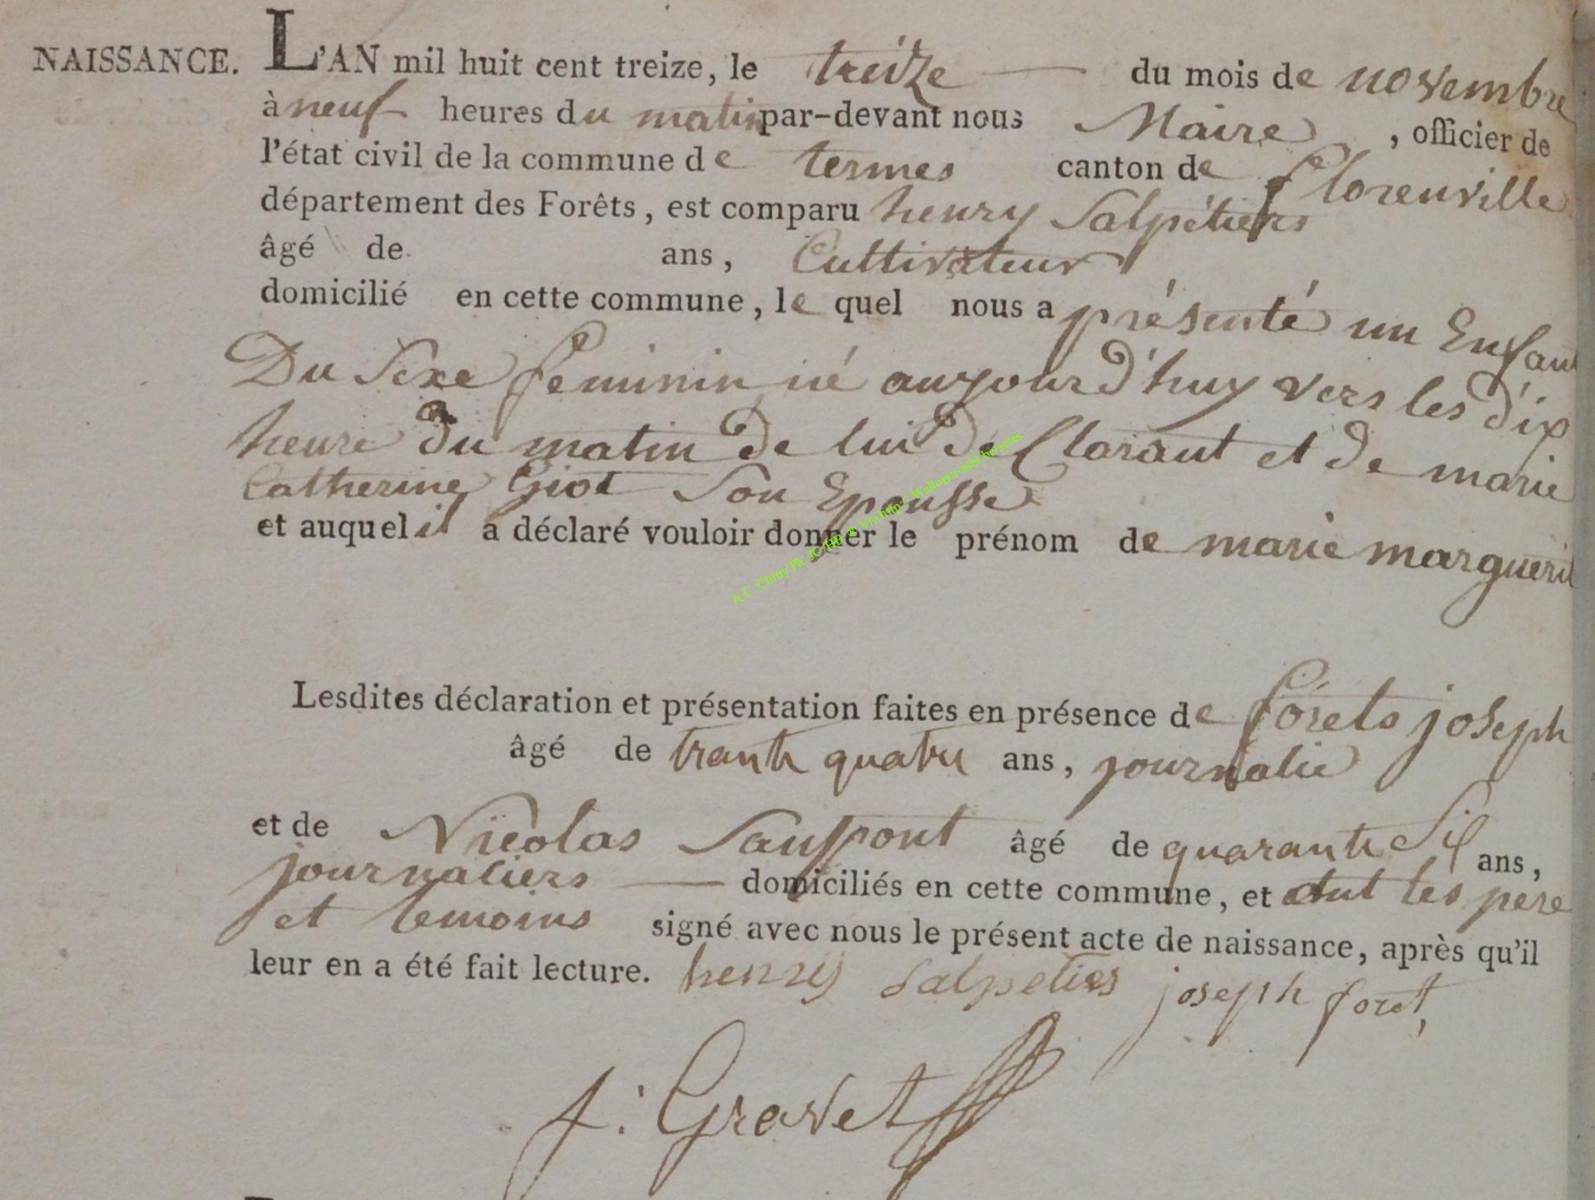 NAISSANCE. L'AN mil huit cent treize, le treize du mois de novembre
à neuf heures du matin par-devant nous Maire, officier de
l'état civil de la commune de termes canton de florenville
département des Forêts, est comparu henry Salpétiers
âgé de ans, Cultivateur
domicilié en cette commune, le quel nous a présenté un Enfant
Du Sexe feminin né aujourd'huy vers les dix
heure du matin de lui Déclarant et de marie
Catherine Giot Son Epousse
et auquel il a déclaré vouloir donner le prénom de marie marguerit
Lesdites déclaration et présentation faites en présence de forets joseph
âgé de trante quatre ans, journalie
et de Nicolas Saupont âgé de quarante Six ans,
journaliers domiciliés en cette commune, et les pere
et temoins signé avec nous le présent acte de naissance, après qu'il
leur en a été fait lecture. henry Salpetier joseph foret,
f: Gravet